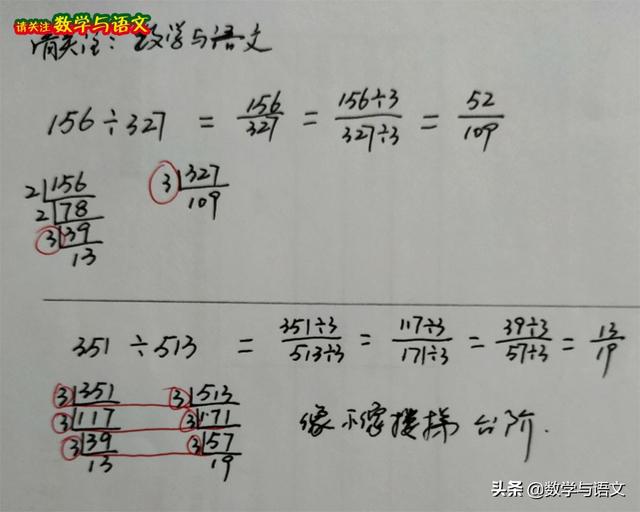 请关注 数学与语文
请关注：数学与语文
156÷327 = 156/327 = 156÷3/327÷3 = 52/109
2 156
2 78
3 39
13
3 327
109
351÷513 = 351÷3/513÷3 = 117÷3/171÷3 = 39÷3/57÷3 = 13/19
3 351
3 117
3 39
13
3 513
3 171
3 57
19
像不像楼梯台阶.
头条 @数学与语文